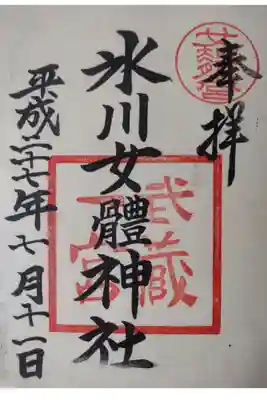 奉拝
氷川女體神社
武蔵
一宮
平成二十七年七月十一日